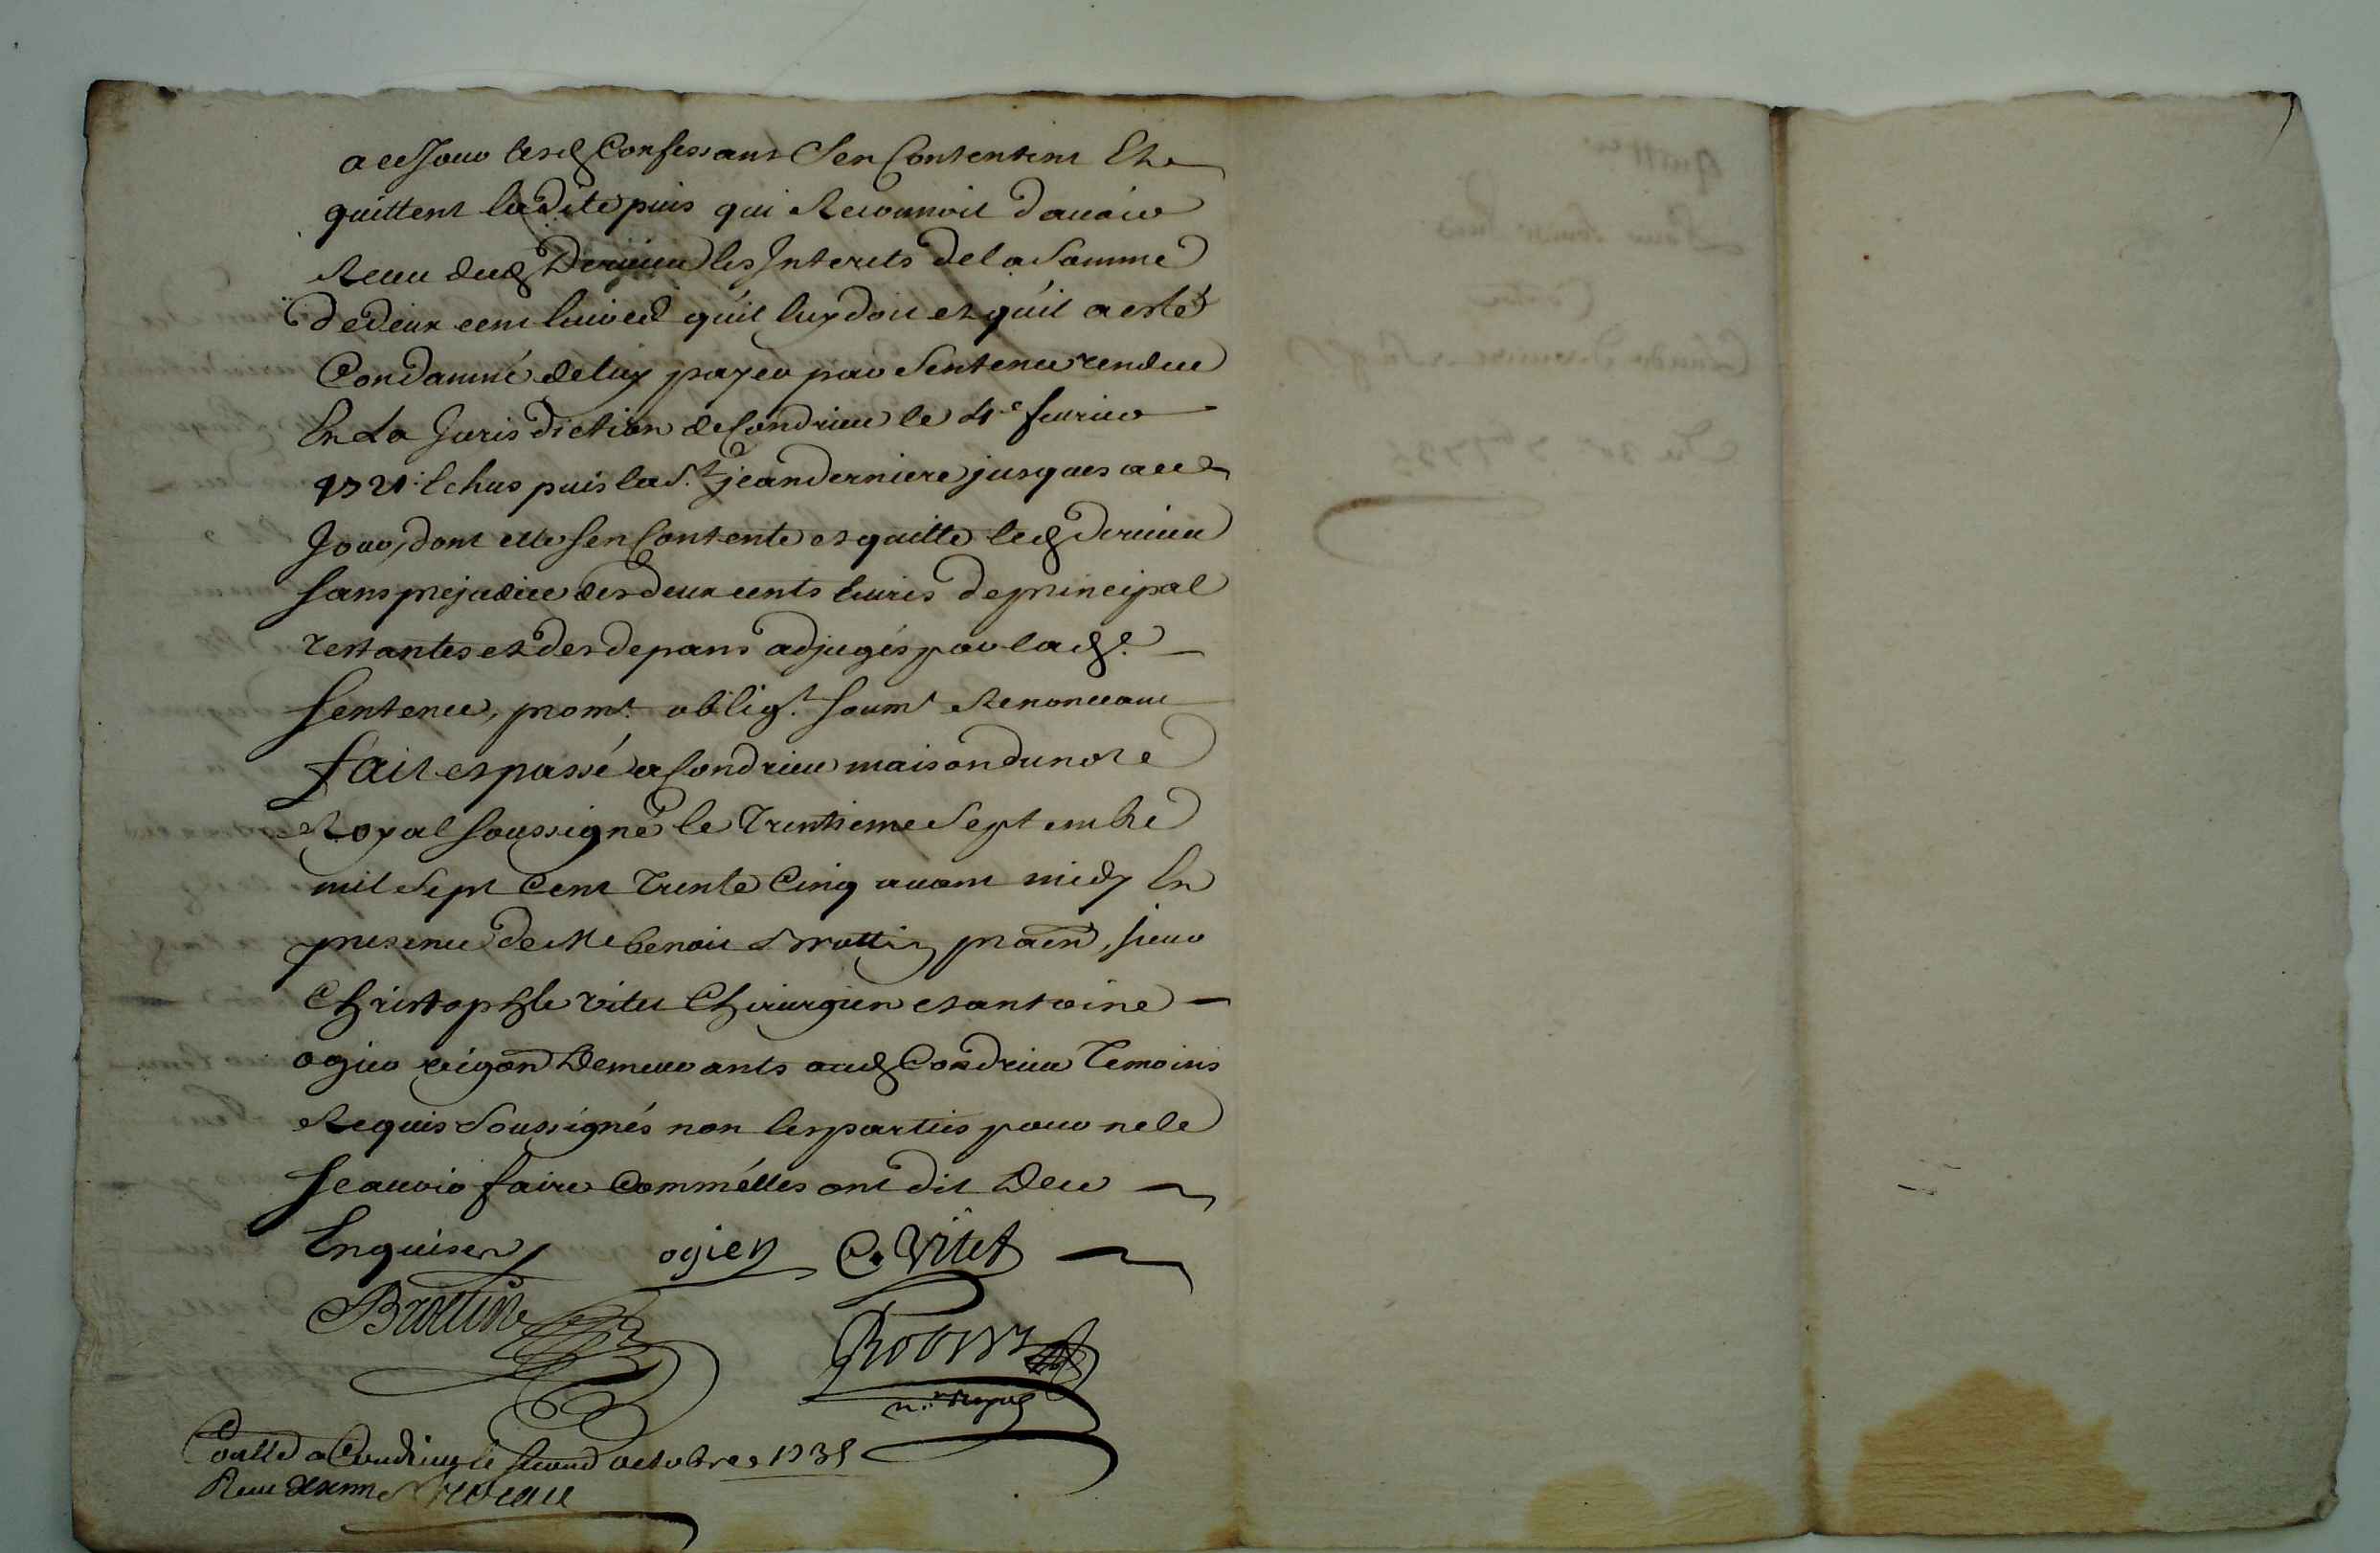 a ce Jour lesd Confessant S'en Contentent Et
quittent ladite puis qui Reconnoit d'auoir
Receu dud Deruieu les Interets de la Somme
de deux cent liures qu'il luy doit et qu'il a esté
Condamné de luy payer par Sentence rendue
En La Jurisdiction de Condrieu le 4e feurier
1721 Echus puis la St jean derniere jusques a ce
Jour, dont elle s'en Contente et quitte led Deruieu
sans prejudice des deux cents liures de principal
restantes et des depans adjugés par lad.e
Sentence, promt. oblig.t soumt Renonceant
fait et passé a Condrieu maison du nore
Royal soussigné le Trentieme Septembre
mil Sept Cent Trente Cinq auant midy En
presence de Me benoit Brottin praen, sieur
Christophle vitet Chirurgien et antoine
ogier Demeurants aud Condrieu Temoins
Requis Soussignés non les parties pour ne le
scauoir faire Comm'elles ont dit De ce
Enquises ogier C. Vitet
Brottin
Robin
n.re Royal
Conllé a Condrieu le second octobre 1735
Receu